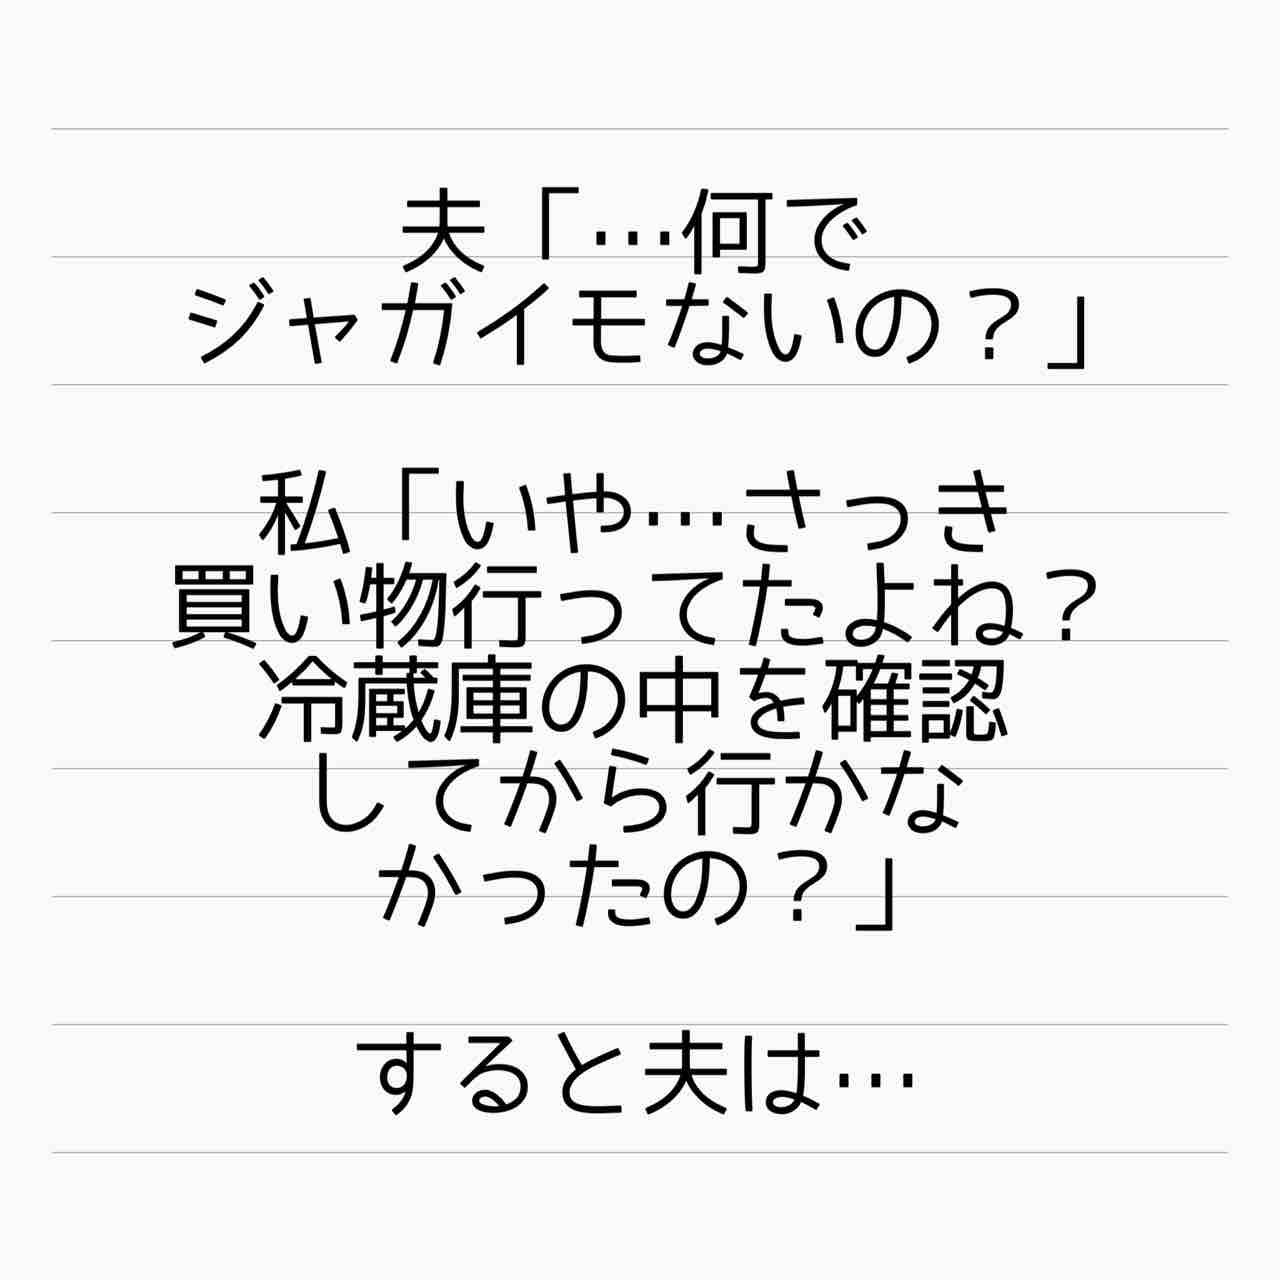 夫「…何で
ジャガイモないの？」
私「いや…さっき
買い物行ってたよね？
冷蔵庫の中を確認
してから行かな
かったの？」
すると夫は…